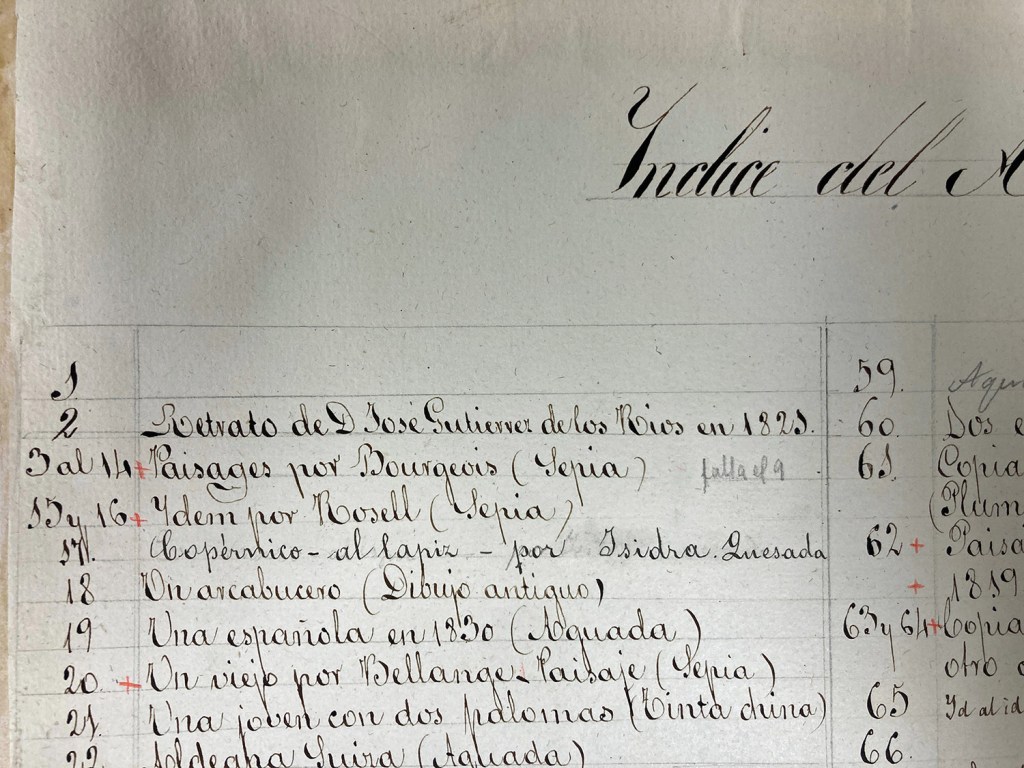 Yndice del
1
2 Retrato de D José Gutierrez de los Rios en 1821.
3 al 14 + Paisages por Bourgeois (Sepia) falta el 9
15 y 16 + Ydem por Rosell (Sepia)
17. Copérnico - al lapiz - por Isidra Quesada
18 Un arcabucero (Dibujo antiguo)
19 Una española en 1830 (Aguada)
20 + Un viejo por Bellange - Paisaje (Sepia)
21. Una joven con dos palomas (Tinta china)
22 Aldeana Suiza (Aguada)
59. Agua
60. Dos
61. Copia
(Plum
62 + Paisa
+ 1819
63 y 64 + Copia
otro
65 Id al id
66.